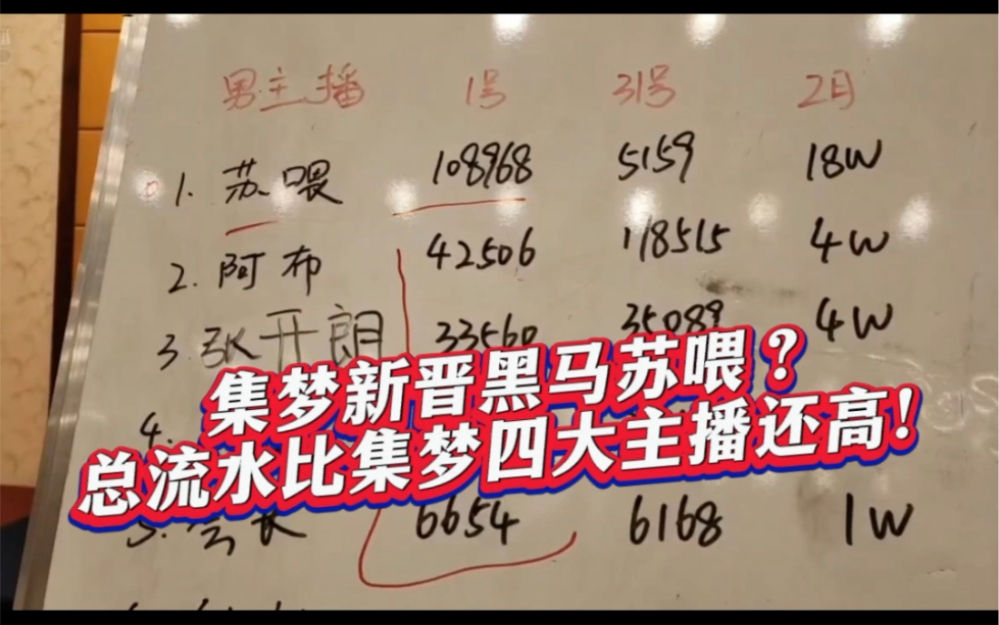 男主播 1号 31号 2月
1. 苏喂 108968 5159 18W
2. 阿布 42506 118515 4W
3. 张开朗 33560 35089 4W
集梦新晋黑马苏喂？
4.
总流水比集梦四大主播还高!
5. 会长 6654 6168 1W